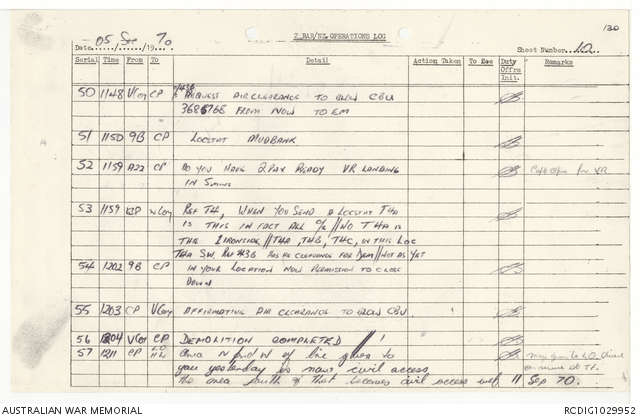 130
2 RAR/NZ OPERATIONS LOG
Date 05 Sep 1970
Sheet Number 10
Serial Time From To Detail Action Taken To See Duty Offrs Init. Remarks
50 1148 V Coy CP REQUEST AIR CLEARANCE TO BLOW CBU
FROM NOW TO EM
51 1150 9B CP LOCSTAT MUDBANK
52 1159 A22 CP DO YOU HAVE 2 PAX READY VR LANDING
IN 5 mins
53 1159 CP W Coy REF T4, WHEN YOU SEND A LOCSTAT T4A
IS THIS IN FACT ALL C/S // NO T4A IS
THE IRONSIDE // T4A, T4B, T4C, IN THIS LOC
FOR DEM // NOT AS YET
54 1202 9B CP IN YOUR LOCATION NOW PERMISSION TO CLOSE
DOWN
55 1203 CP V Coy AFFIRMATIVE AIR CLEARANCE TO BLOW CBU
56 1204 V Coy CP DEMOLITION COMPLETED
57 1211 CP Area N and W of line given to
you yesterday is now civil access
the area south of that becomes civil access wef 11 Sep 70.
AUSTRALIAN WAR MEMORIAL
RCDIG1029952